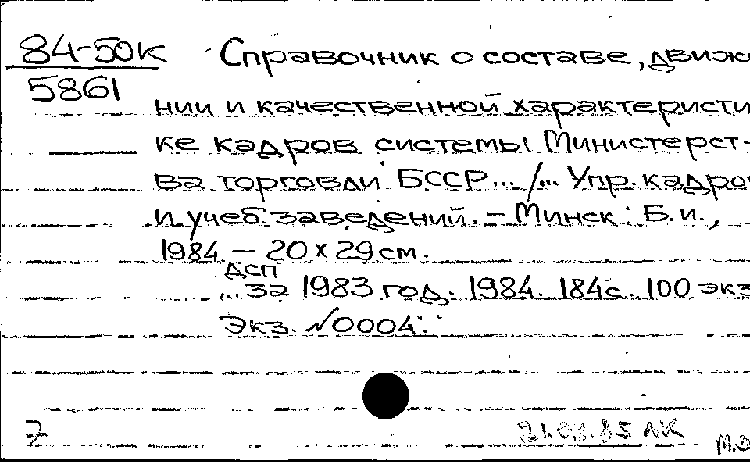 84-50К Справочник о составе, движе
5861
нии и качественной характеристи
ке кадров системы Министерст-
ва торговли БССР... /... Упр. кадро
и учеб. заведений. - Минск: Б.и.,
1984 - 20 x 29 см.
ДСП
... за 1983 год. 1984. 184с. 100 экз
Экз. №0004.